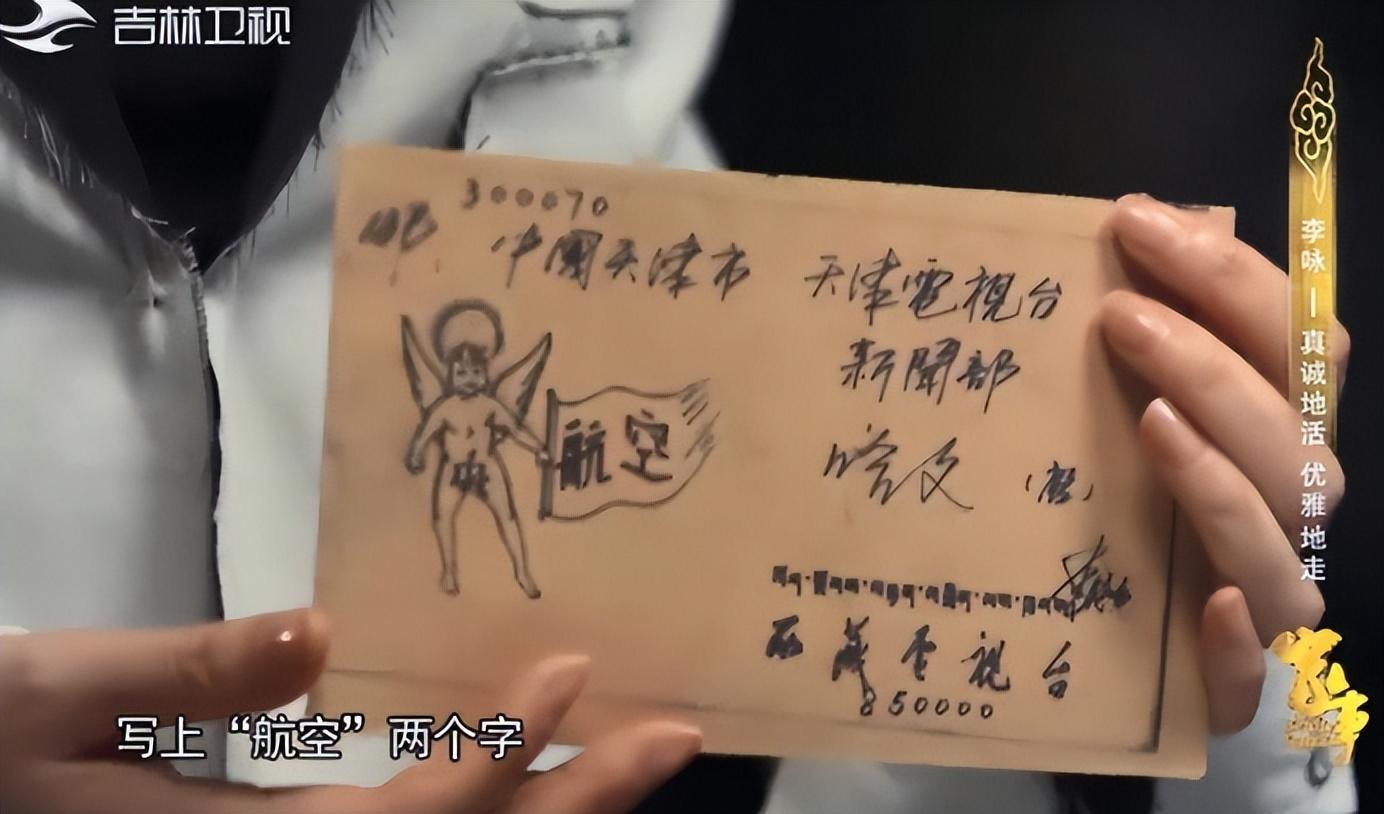 吉林卫视
300070
中國天津市
天津電視台
新聞部
哈文
航空
西藏电視台
850000
李咏 — 真诚地活 优雅地走
家事
写上“航空”两个字